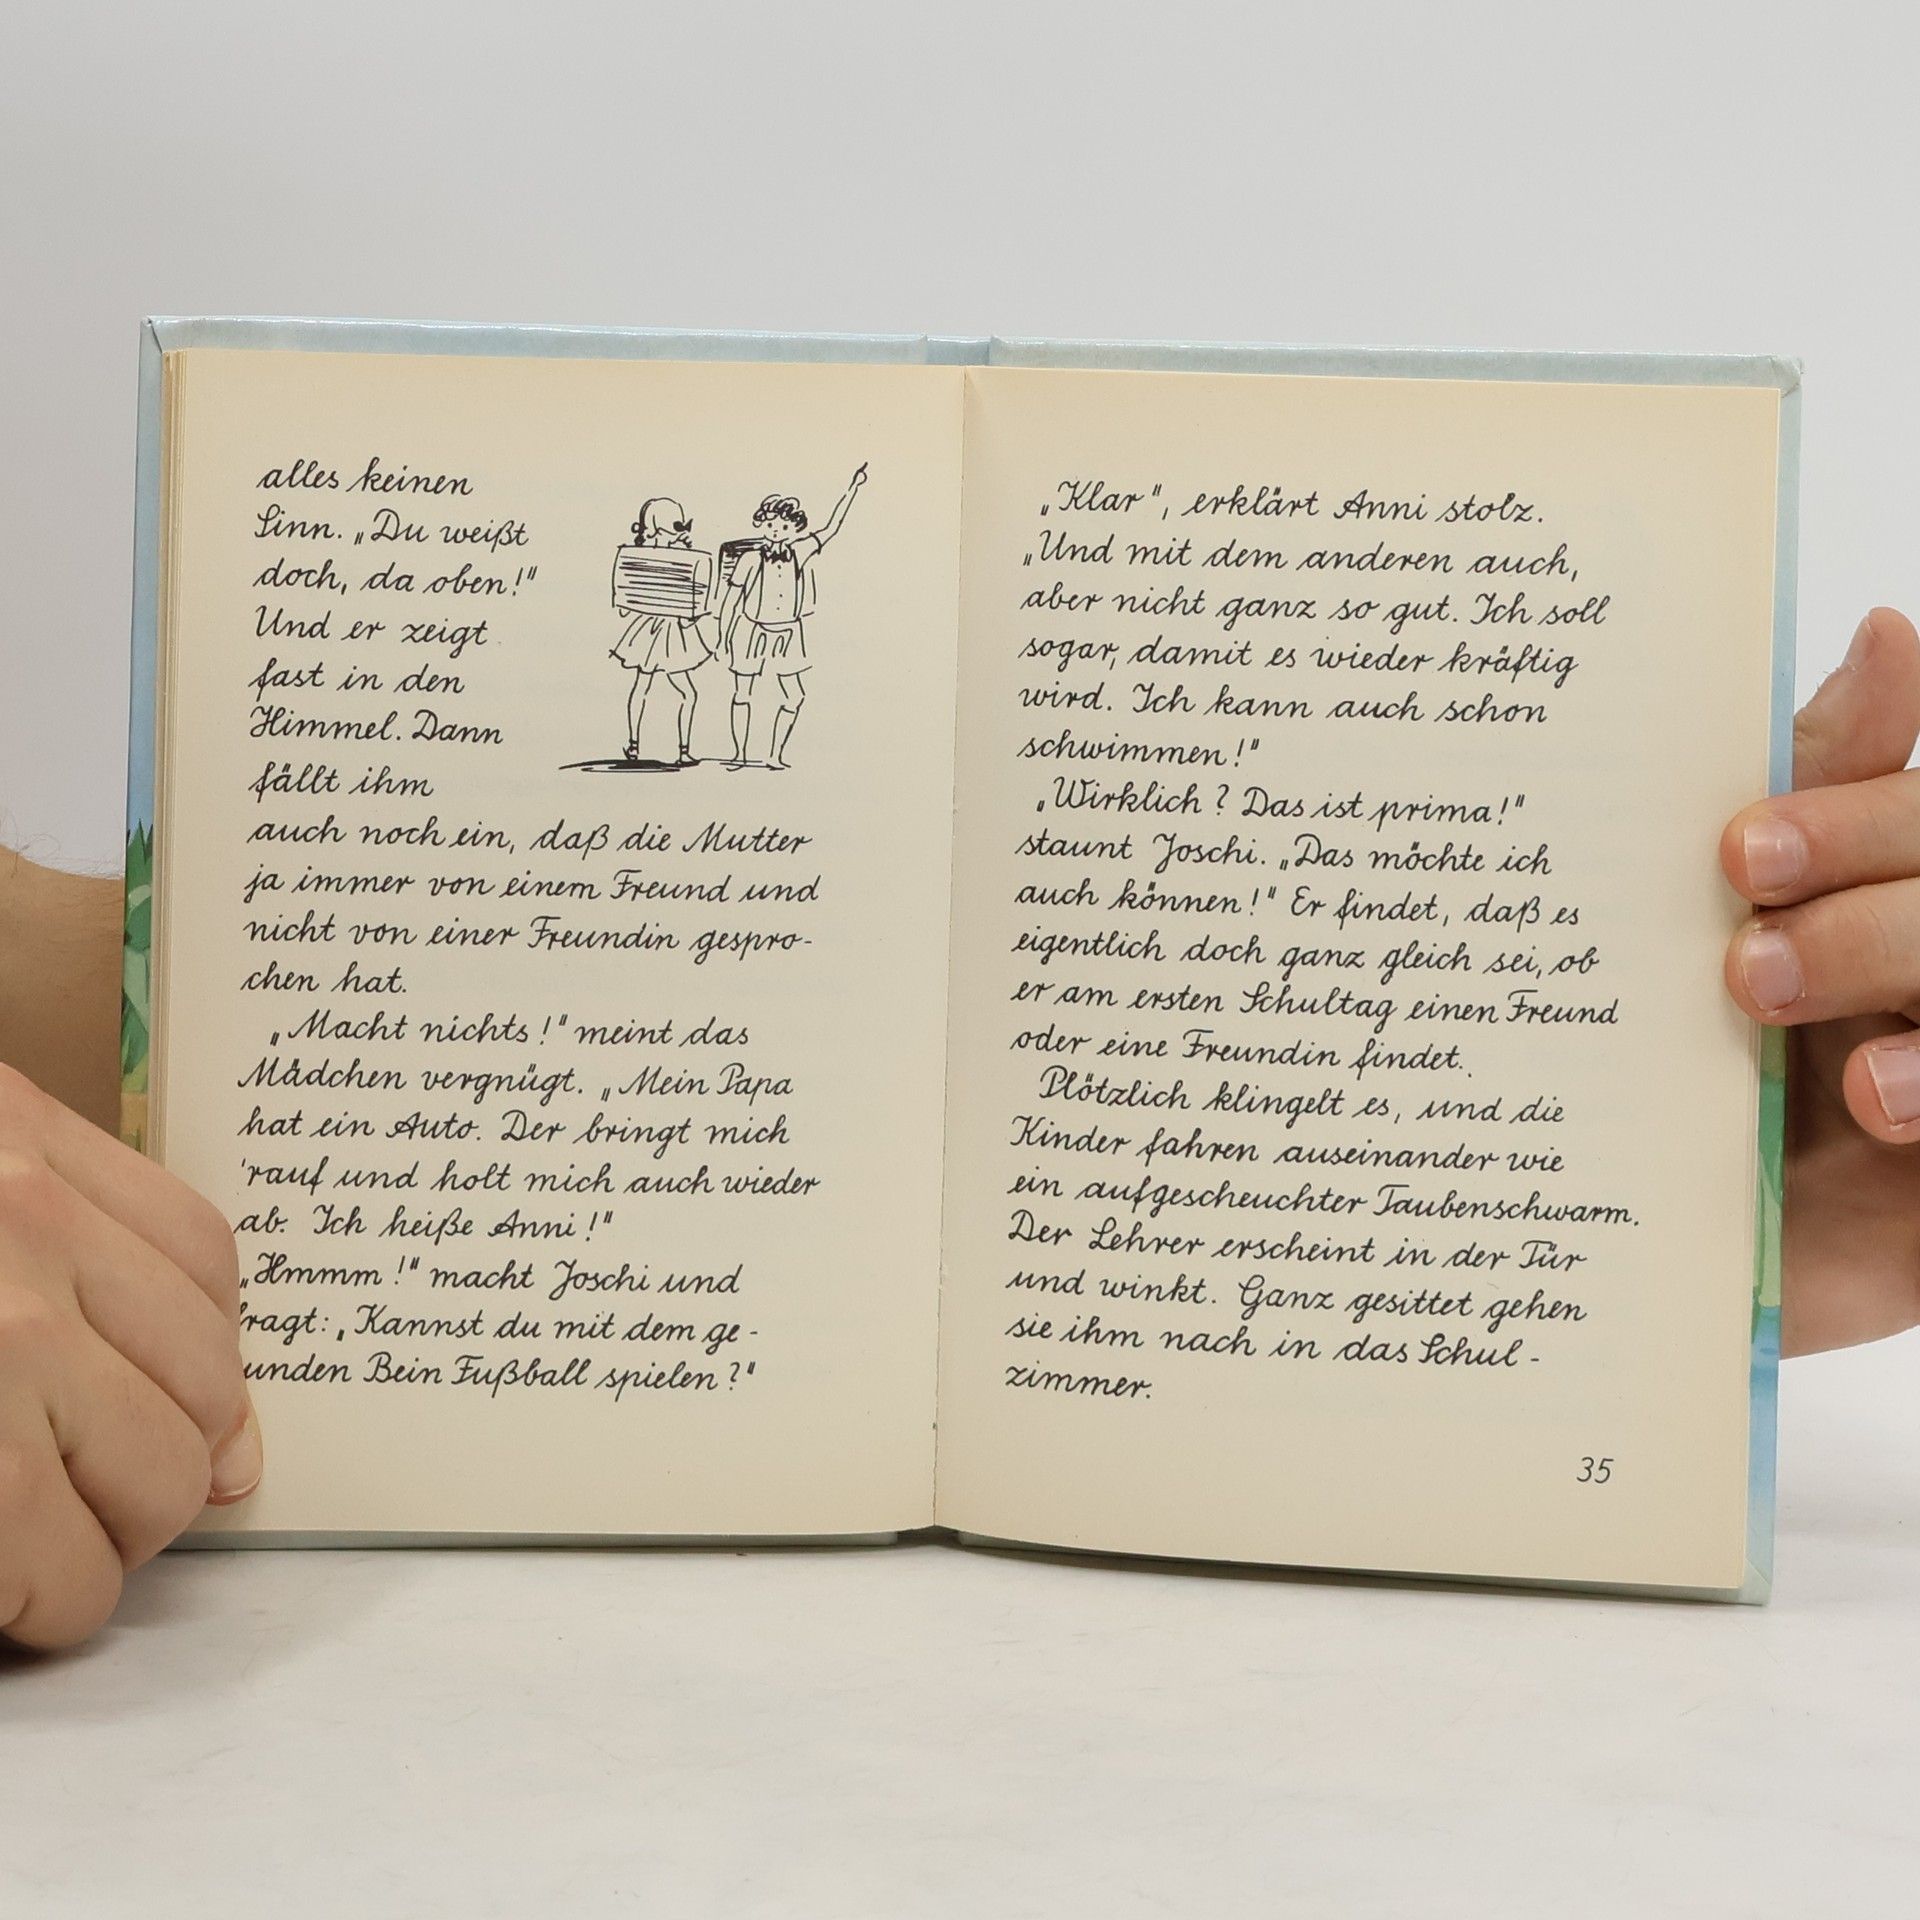 alles keinen
Sinn. „Du weißt
doch, da oben!"
Und er zeigt
fast in den
Himmel. Dann
fällt ihm
auch noch ein, daß die Mutter
ja immer von einem Freund und
nicht von einer Freundin gespro-
chen hat.
„Macht nichts!" meint das
Mädchen vergnügt. „Mein Papa
hat ein Auto. Der bringt mich
'rauf und holt mich auch wieder
ab. Ich heiße Anni!"
„Hmmm!" macht Joschi und
fragt: „Kannst du mit dem ge-
unden Bein Fußball spielen?"
„Klar", erklärt Anni stolz.
„Und mit dem anderen auch,
aber nicht ganz so gut. Ich soll
sogar, damit es wieder kräftig
wird. Ich kann auch schon
schwimmen!"
„Wirklich? Das ist prima!"
staunt Joschi. „Das möchte ich
auch können!" Er findet, daß es
eigentlich doch ganz gleich sei, ob
er am ersten Schultag einen Freund
oder eine Freundin findet.
Plötzlich klingelt es, und die
Kinder fahren auseinander wie
ein aufgescheuchter Taubenschwarm.
Der Lehrer erscheint in der Tür
und winkt. Ganz gesittet gehen
sie ihm nach in das Schul-
zimmer.
35